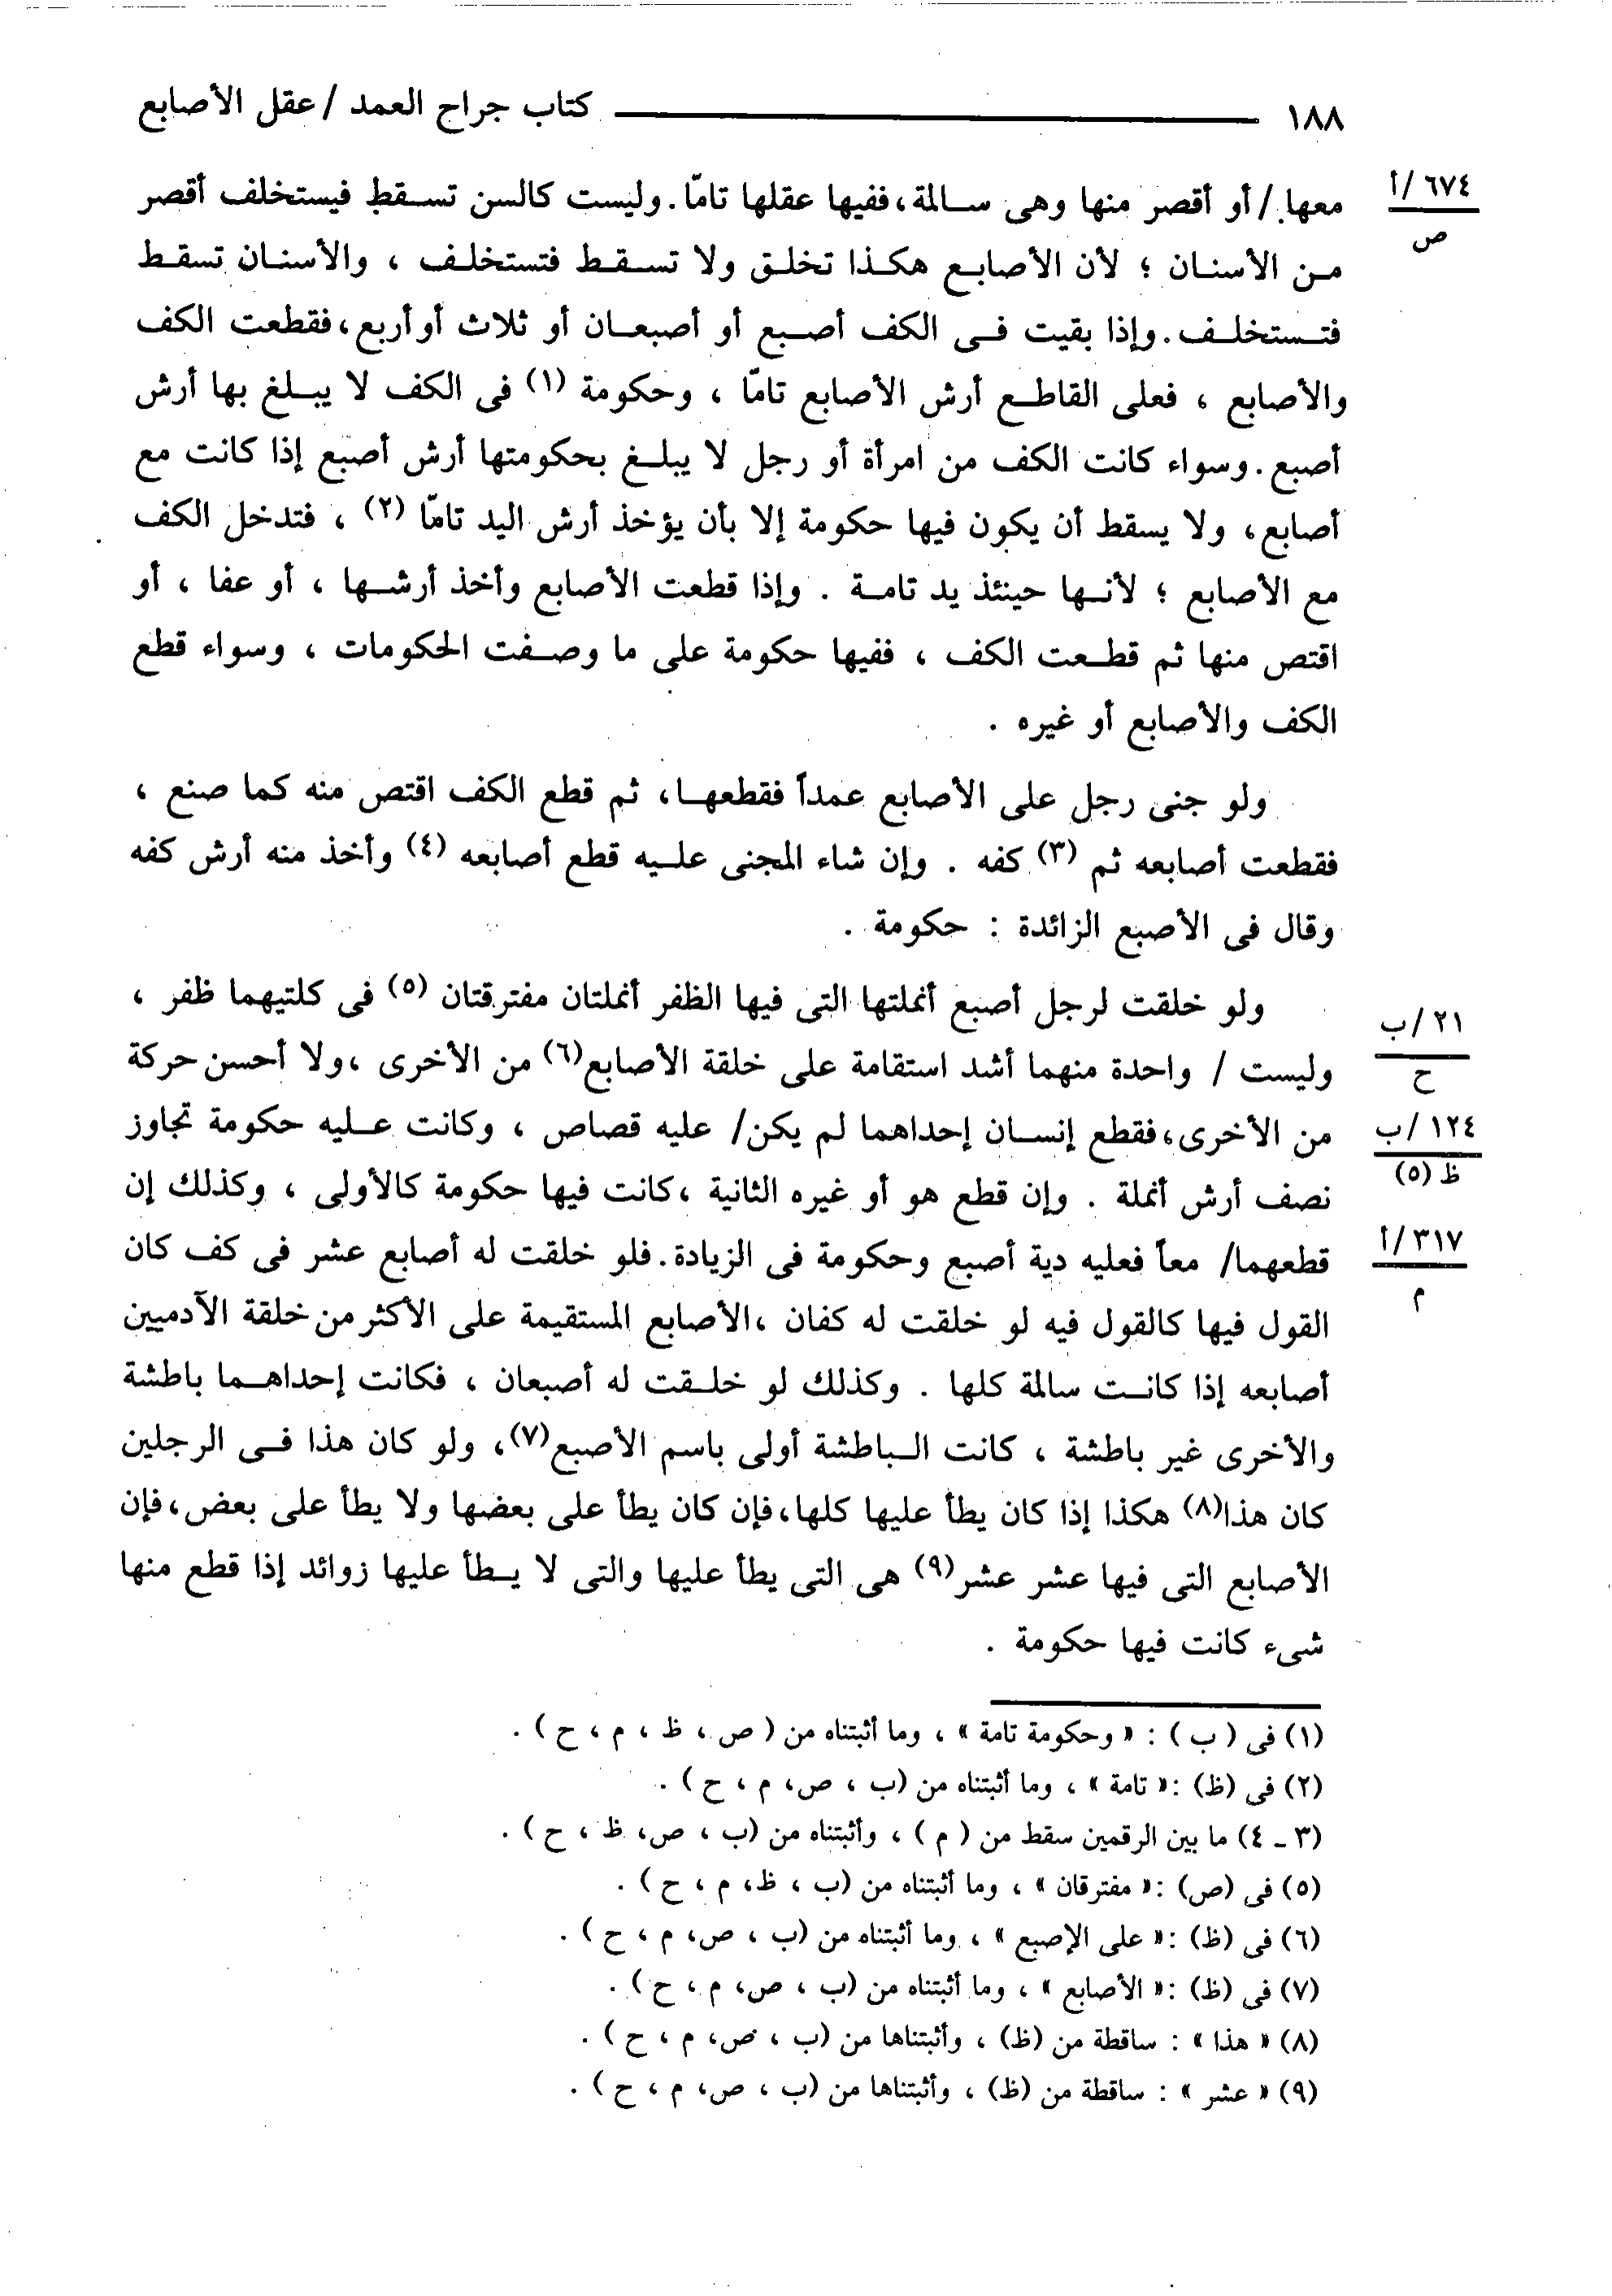 ١٨٨ كتاب جراح العمد / عقل الأصابع
معها / أو أقصر منها وهى سالمة ، ففيها عقلها تامّا . وليست كالسن تسقط فيستخلف أقصر
٦٧٤ / أ
ص
من الأسنان ؛ لأن الأصابع هكذا تخلق ولا تسقط فتستخلف ، والأسنان تسقط
فتستخلف . وإذا بقيت فى الكف أصبع أو أصبعان أو ثلاث أو أربع ، فقطعت الكف
والأصابع ، فعلى القاطع أرش الأصابع تامّا ، وحكومة (١) فى الكف لا يبلغ بها أرش
أصبع . وسواء كانت الكف من امرأة أو رجل لا يبلغ بحكومتها أرش أصبع إذا كانت مع
أصابع ، ولا يسقط أن يكون فيها حكومة إلا بأن يؤخذ أرش اليد تامّا (٢) ، فتدخل الكف
مع الأصابع ؛ لأنها حينئذ يد تامة . وإذا قطعت الأصابع وأخذ أرشها ، أو عفا ، أو
اقتص منها ثم قطعت الكف ، ففيها حكومة على ما وصفت الحكومات ، وسواء قطع
الكف والأصابع أو غيره .
ولو جنى رجل على الأصابع عمداً فقطعها ، ثم قطع الكف اقتص منه كما صنع ،
فقطعت أصابعه ثم (٣) كفه . وإن شاء المجنى عليه قطع أصابعه (٤) وأخذ منه أرش كفه
وقال فى الأصبع الزائدة : حكومة .
ولو خلقت لرجل أصبع أنملتها التى فيها الظفر أنملتان مفترقتان (٥) فى كلتيهما ظفر ،
٢١ / ب
ح
وليست / واحدة منهما أشد استقامة على خلقة الأصابع (٦) من الأخرى ، ولا أحسن حركة
من الأخرى ، فقطع إنسان إحداهما لم يكن / عليه قصاص ، وكانت عليه حكومة تجاوز
١٢٤ / ب
ظ (٥)
نصف أرش أنملة . وإن قطع هو أو غيره الثانية ، كانت فيها حكومة كالأولى ، وكذلك إن
قطعهما / معاً فعليه دية أصبع وحكومة فى الزيادة . فلو خلقت له أصابع عشر فى كف كان
٣١٧ / أ
م
القول فيها كالقول فيه لو خلقت له كفان ، الأصابع المستقيمة على الأكثر من خلقة الآدميين
أصابعه إذا كانت سالمة كلها . وكذلك لو خلقت له أصبعان ، فكانت إحداهما باطشة
والأخرى غير باطشة ، كانت الباطشة أولى باسم الأصبع (٧) ، ولو كان هذا فى الرجلين
كان هذا (٨) هكذا إذا كان يطأ عليها كلها ، فإن كان يطأ على بعضها ولا يطأ على بعض ، فإن
الأصابع التى فيها عشر عشر (٩) هى التى يطأ عليها والتى لا يطأ عليها زوائد إذا قطع منها
شىء كانت فيها حكومة .
(١) فى ( ب ) : « وحكومة تامة » ، وما أثبتناه من ( ص ، ظ ، م ، ح ) .
(٢) فى (ظ) : « تامة » ، وما أثبتناه من (ب ، ص ، م ، ح ) .
(٣ - ٤) ما بين الرقمين سقط من ( م ) ، وأثبتناه من (ب ، ص ، ظ ، ح ) .
(٥) فى (ص) : « مفترقان » ، وما أثبتناه من (ب ، ظ ، م ، ح ) .
(٦) فى (ظ) : « على الإصبع » ، وما أثبتناه من (ب ، ص ، م ، ح ) .
(٧) فى (ظ) : « الأصابع » ، وما أثبتناه من (ب ، ص ، م ، ح ) .
(٨) « هذا » : ساقطة من (ظ) ، وأثبتناها من (ب ، ص ، م ، ح ) .
(٩) « عشر » : ساقطة من (ظ) ، وأثبتناها من (ب ، ص ، م ، ح ) .